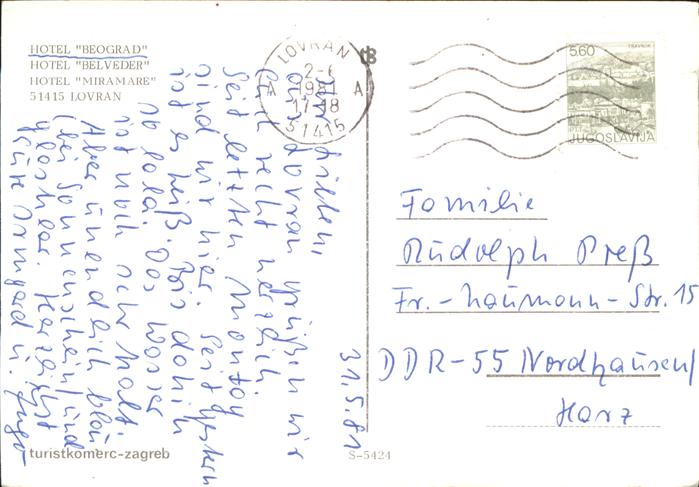 HOTEL "BEOGRAD"
HOTEL "BELVEDER"
HOTEL "MIRAMARE"
51415 LOVRAN
LOVRAN
2-6
1981
A A
17-18
51415
560
TRAVNIK
JUGOSLAVIJA
31.5.81
Ihr Lieben,
aus Lovran grüßen wir
Euch recht herzlich.
Seit letzten Montag
sind wir hier. Seit gestern
ist es heiß. Bis dahin
so lala. Das Wasser
ist noch sehr kalt.
Aber unendlich blau
(bei Sonnenschein) und
glasklar. Herzlichst
Eure Irmgard u. Ingo
Familie
Rudolph Preß
Fr.-Naumann-Str. 15
DDR-55 Nordhausen/
Harz
turistkomerc-zagreb
S-5424